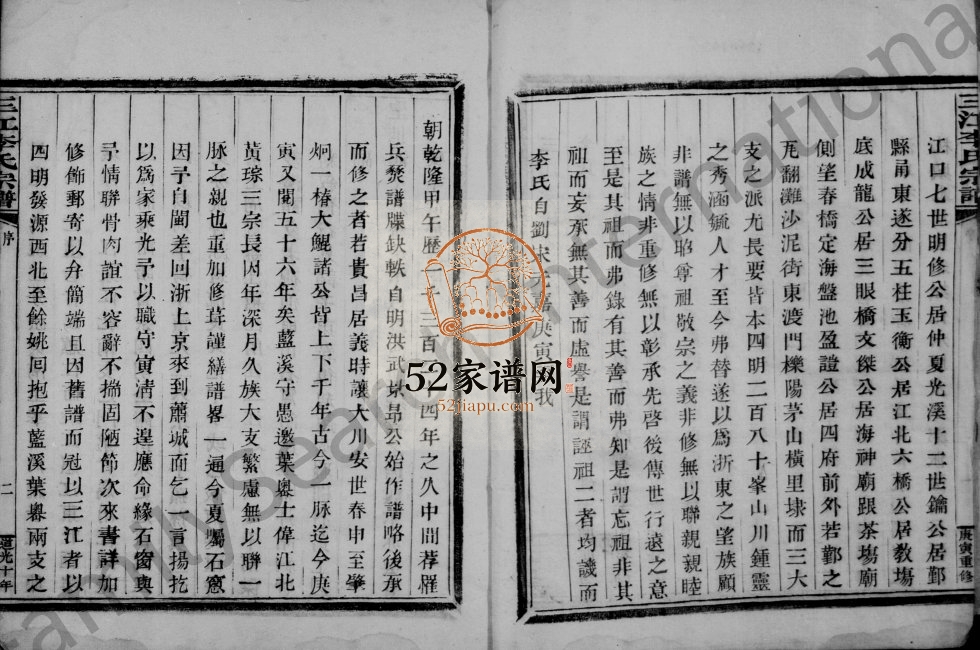 三江李氏宗譜
庚寅重修
江口七世明修公居仲夏光溪十二世鑰公居鄞
縣甬東遂分五柱玉衡公居江北六橋公居教塲
底成龍公居三眼橋文傑公居海神廟跟茶塲廟
側望春橋定海盤池盈證公居四府前外若鄞之
苑翻灘沙泥街東渡門櫟陽茅山橫里埭而三大
支之派尤長要皆本四明二百八十峯山川鍾靈
之秀涵毓人才至今弗替遂以爲浙東之望族顧
非譜無以昭尊祖敬宗之義非修無以聯親親睦
族之情非重修無以彰承先啓後傳世行遠之意
至是其祖而弗錄有其善而弗知是謂忘祖非其
祖而妄承無其善而虛譽是謂誣祖二者均譏而
李氏自劉宋元嘉庚寅我
朝乾隆甲午歷一千三百四十四年之久中間荐罹
兵燹譜牒缺軼自明洪武景昂公始作譜略後承
而修之者若貴昌居義時讓大川安世春申至肇
炯一椿大鯤諸公皆上下千年古今一脉迄今庚
寅又閱五十六年矣藍溪守愚邀葉嶴士偉江北
黃琮三宗長因年深月久族大支繁慮無以聯一
脉之親也重加修葺謹繕譜畧一通今夏囑石窻
因予自閩差回浙上京來到蕭城面乞一言揚扢
以爲家乘光予以職守寅清不遑應命緣石窗與
予情聯骨肉誼不容辭不揣固陋節次來書詳加
修飾郵寄以弁簡端且因舊譜而冠以三江者以
四明發源西北至餘姚回抱乎藍溪葉嶴兩支之
三江李氏宗譜
序
二
道光十年
52家谱网
52jiapu.com
FamilySearch International